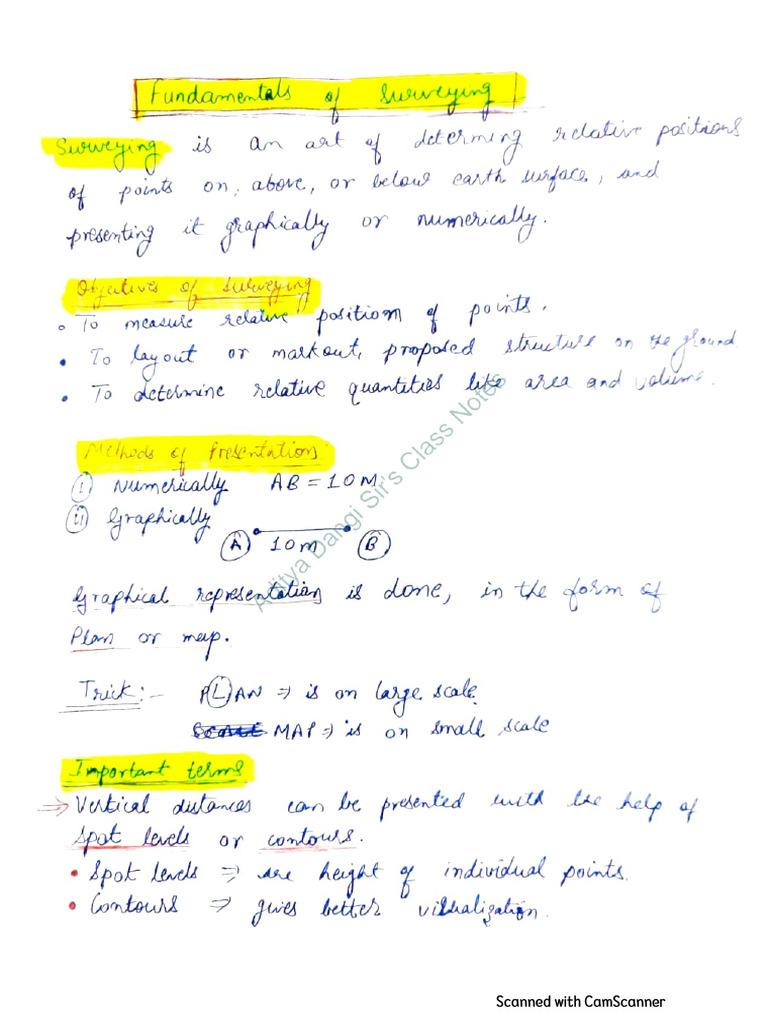 Fundamentals of Surveying
Surveying is an art of determing relative positions
of points on, above, or below earth surface, and
presenting it graphically or numerically.
Objectives of Surveying
• To measure relative position of points.
• To layout or markout, proposed structure on the ground
• To determine relative quantities like area and volume.
Methods of Presentation:
(i) Numerically AB = 10M
(ii) Graphically
A 10m B
Graphical representation is done, in the form of
Plan or map.
Trick:- PLAN ⇒ is on large scale.
MAP ⇒ is on small scale
Important terms
⇒ Vertical distances can be presented with the help of
Spot levels or contours.
• Spot levels ⇒ are height of individual points.
• Contours ⇒ gives better visualization.
Aditya Dangi Sir's Class Notes
Scanned with CamScanner